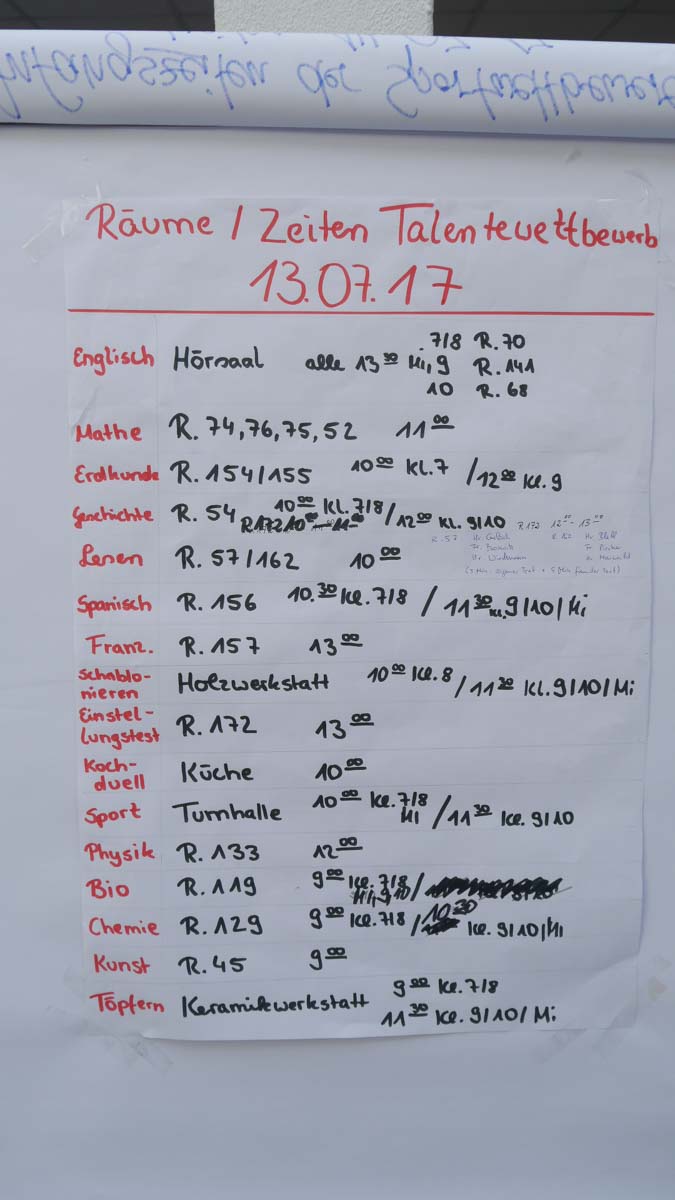 Anfangszeiten der Sportwettbewerbe
Räume / Zeiten Talentewettbewerb
13.07.17
Englisch Hörsaal alle 13 30 7/8 R. 70
Mi, 9 R. 141
10 R. 68
Mathe R. 74, 76, 75, 52 11 00
Erdkunde R. 154/155 10 00 Kl. 7 / 12 00 Kl. 9
Geschichte R. 54 10 00 Kl. 7/8 / 12 00 Kl. 9/10 R. 172 12 00 - 13 00
R. 57
R. 162
Lesen R. 57/162 10 00
Spanisch R. 156 10.30 Kl. 7/8 / 11 30 Kl. 9/10/Mi
Franz. R. 157 13 00
Schablo-
nieren Holzwerkstatt 10 00 Kl. 8 / 11 30 Kl. 9/10/Mi
Einstel-
lungstest R. 172 13 00
Koch-
duell Küche 10 00
Sport Turnhalle 10 00 Kl. 7/8 Mi / 11 30 Kl. 9/10
Physik R. 133 12 00
Bio R. 119 9 00 Kl. 7/8 /
Mi, 9, 10
Chemie R. 129 9 00 Kl. 7/8 / 10 30 Kl. 9/10/Mi
Kunst R. 45 9 00
Töpfern Keramikwerkstatt 9 00 Kl. 7/8
11 30 Kl. 9/10/Mi